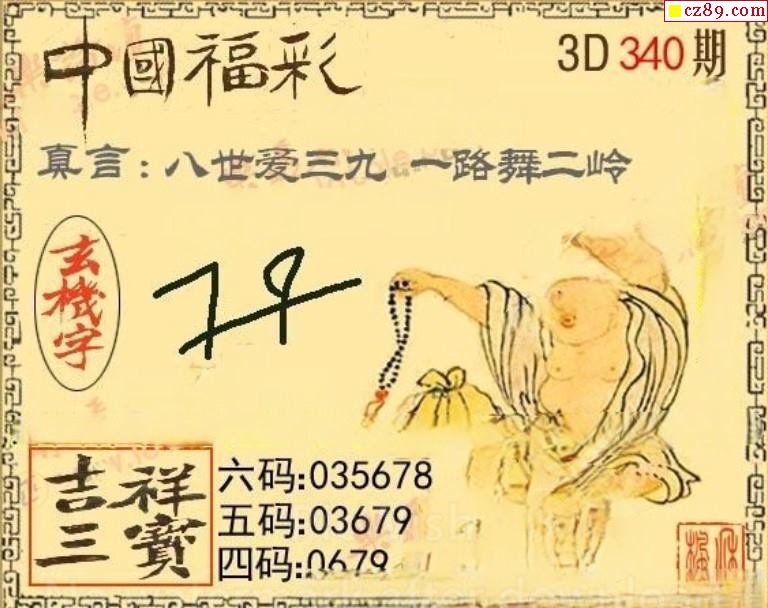 cz89.com
中國福彩
3D 340 期
真言:八世爱三九 一路舞二岭
玄機字
吉祥
三寳
六码:035678
五码:03679
四码:0679